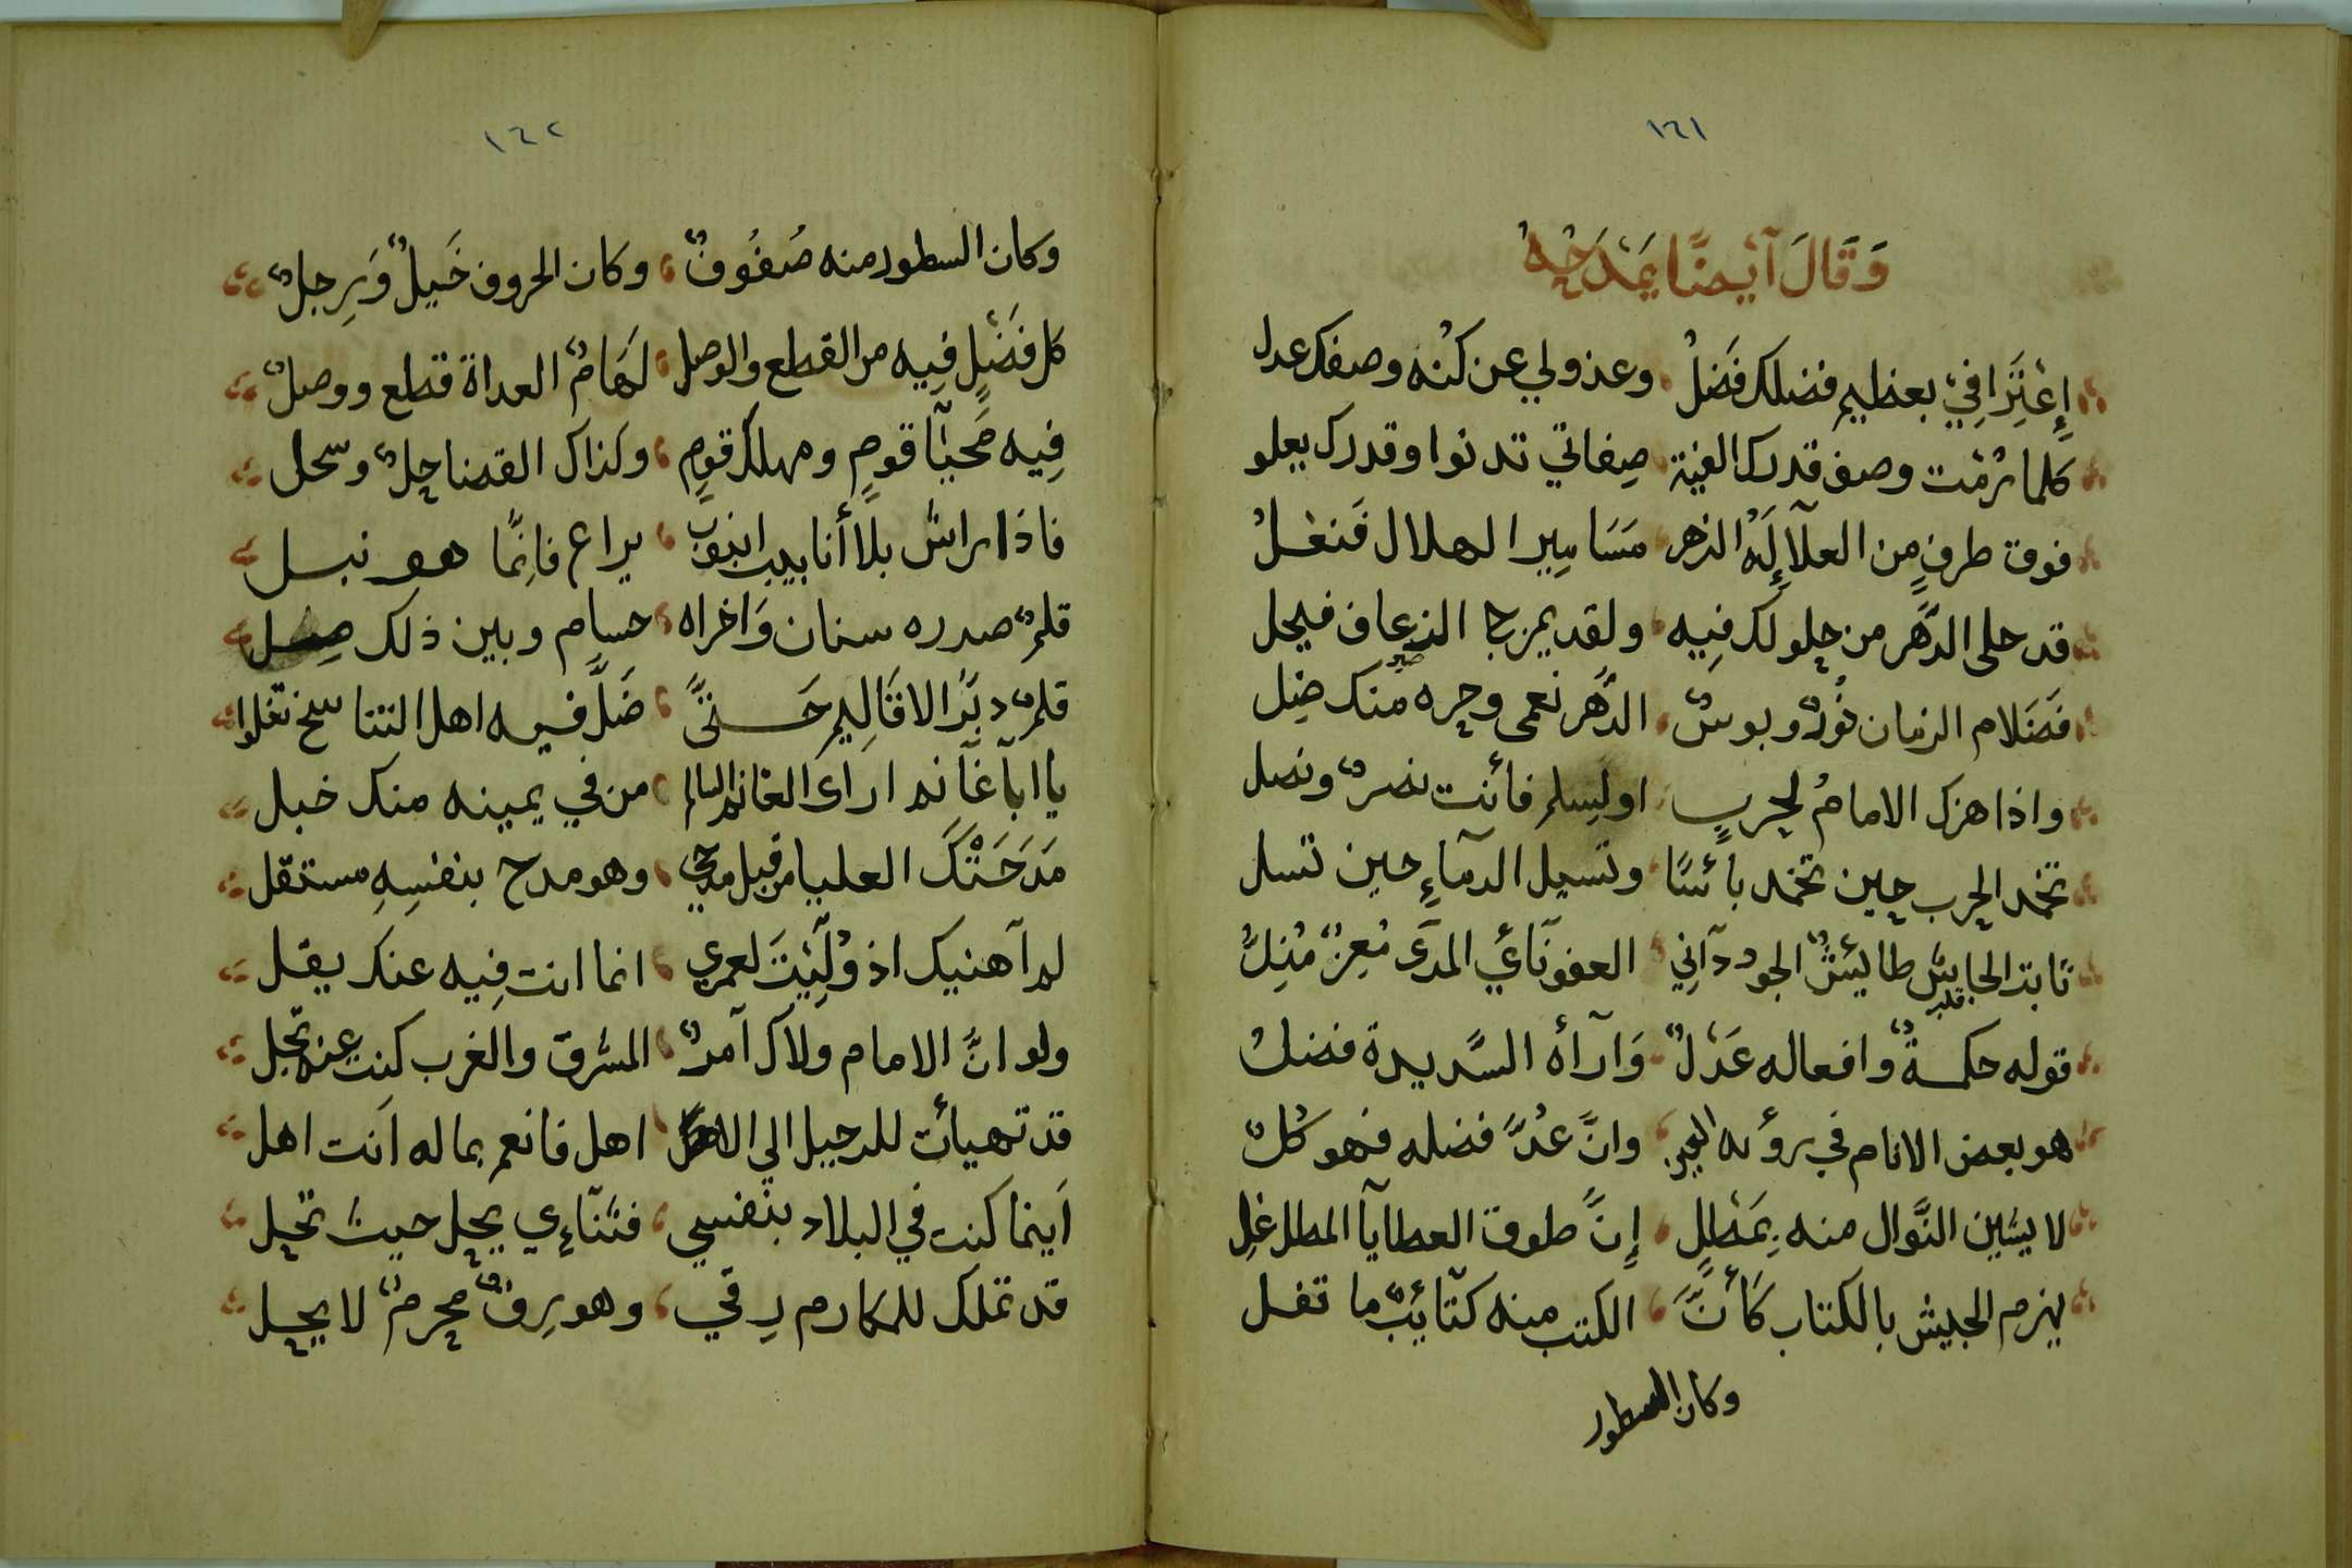 ١٦١
وَقَالَ آيضًا يَمْدَحُهُ
إِعْتِرَافِيْ بعظيم فضلك فَضلُ وعذولي عن كنْه وصفك عدل
كلما رُمْت وصف قدرك الفيْة صِفاتي تدنوا وقدرك يعلو
فوق طرفٍ من العلآ إِلَهْ الزهر مسَامِير الهلال فَنعْلُ
قد حلى الدَّهر من حلولك فِيه ولقد يمزج الزعاف فيحل
فَضَلام الزمان نُورٌ وبوسٌ الدَّهر نعمى وحره منك ضِل
واذا هزك الامامُ لحربٍ او لِسلم فأنت نصرٌ ونصل
تخمد الحرب حين تخمد بأسًا وتسيل الدمآءِ حين تسل
ثابت الجايش طايشُ الجود دَآنِي العفو نَآئي المدَى مُعِزٌ مُذِلُّ
قلبه
قوله حكمةٌ وافعاله عَدْلٌ وَآرآهُ السَّديدة فضلُ
هو بعض الانام في رؤيه العين وانَّ عُدَّ فضله فهو كُلٌ
لا يشين النَّوال منه بِمَطلٍ إِنَّ طوق العطايآ المطل غل
يهزم الجيش بالكتاب كَأنَّ الكتب منه كتآئبٌ ما تفل
وكان السطور
١٦٢
وكان السطور منه صُفُوفٌ وكان الحروف خَيلٌ وَرِجلٌ
كل فَصْلٍ فِيه من القطع والوصل لهَامٌ العداة قطع ووصلٌ
فِيه مَحيَّآ قومٍ ومهلك قومٍ وكذاك القضا حِلٌ وسحل
فاذا راش بلًا أنابيب انبوب يراع فانِمَّا هو نبسل
قلمٌ صدره سنان وَاخراه حسام وبين ذلك صِل
قلمٌ دبَّر الاقالِيم حَتىَّ ضَلَّ فيه اهل التناسخ تغلوا
يا اباَ غآنم اراى الغانم السالم من في يمينه منك خبل
مَدَحَتْكَ العليا من قبل مدحي وهو مدح بنفسِهِ مستقل
لم آهنيك اذ وُلِّيْتَ لعمري انما انت فِيه عنك يقل
ولو انَّ الامام ولاك آمرٌ المشرق والغرب كنت عنه تجل
قد تهيأت للرحيل الي الاهل اهل فانعم بما له آنت اهل
آينما كنت في البلاد بنفسي فثنآءِي يحل حيث تحل
قد تملك للمكارم رِقي وهو رِقٌ محرمٌ لا يحل